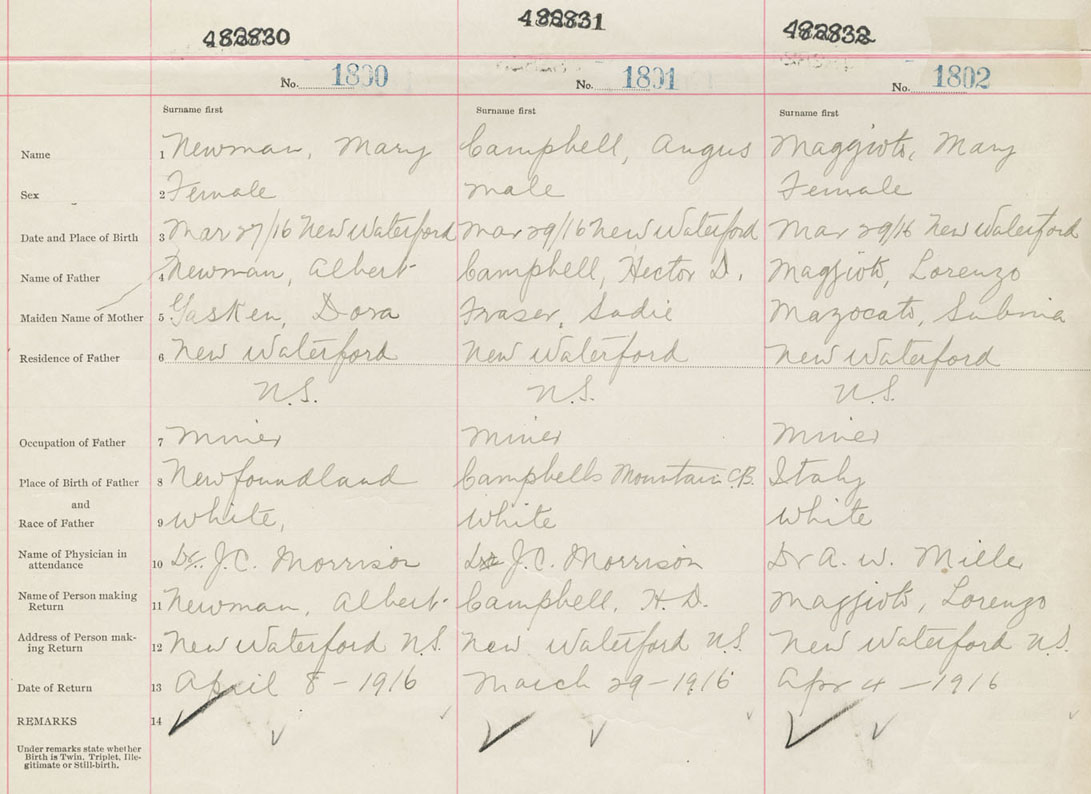 482830 482831 482832
No. 1800 No. 1801 No. 1802
Surname first Surname first Surname first
Name 1 Newman, Mary Campbell, Angus Maggioto, Mary
Sex 2 Female male Female
Date and Place of Birth 3 Mar 27/16 New Waterford Mar 29/16 New Waterford Mar 29/16 New Waterford
Name of Father 4 Newman, Albert Campbell, Hector D. Maggioto, Lorenzo
Maiden Name of Mother 5 Gasken, Dora Fraser, Sadie Mazocato, Subina
Residence of Father 6 New Waterford New Waterford New Waterford
N.S. N.S. N.S.
Occupation of Father 7 Miner Miner Miner
Place of Birth of Father 8 Newfoundland Campbells Mountain C.B. Italy
and
Race of Father 9 White, White White
Name of Physician in
attendance 10 Dr. J.C. Morrison Dr J.C. Morrison Dr A. W. Miller
Name of Person making
Return 11 Newman, Albert Campbell, H. D. Maggioto, Lorenzo
Address of Person mak-
ing Return 12 New Waterford N.S. New Waterford N.S. New Waterford N.S.
Date of Return 13 April 8 - 1916 March 29 - 1916 Apr 4 - 1916
REMARKS 14
Under remarks state whether
Birth is Twin, Triplet, Ille-
gitimate or Still-birth.